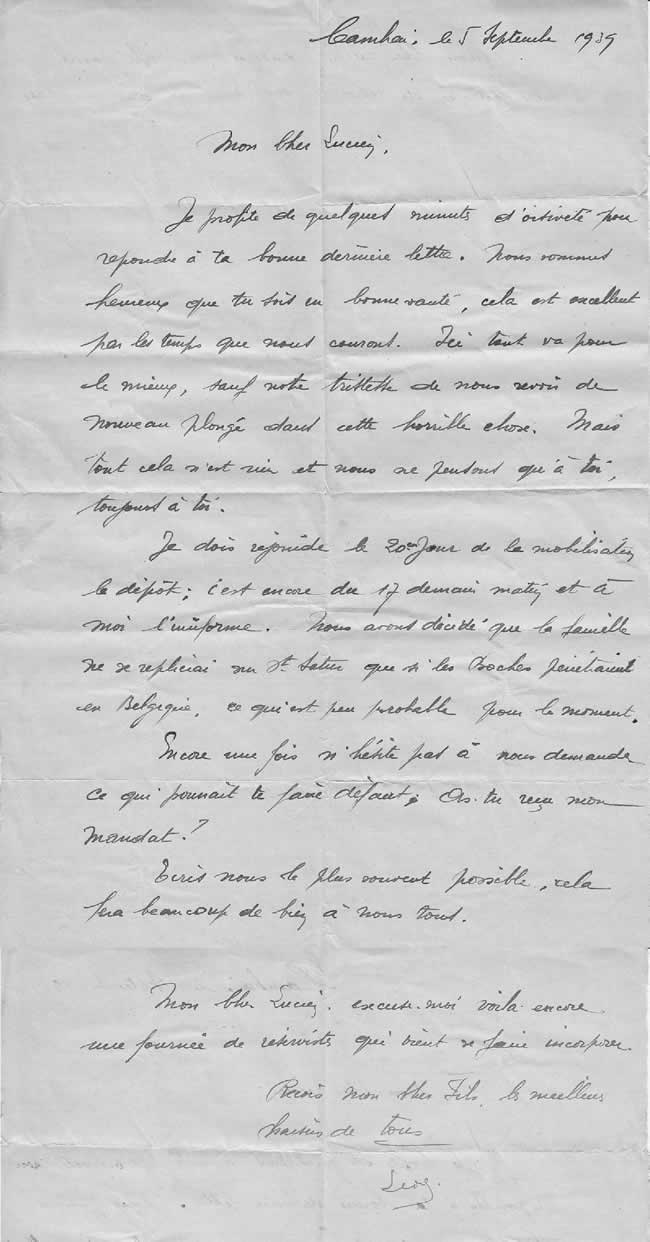 Cambrai, le 5 Septembre 1939
Mon Cher Lucien,
Je profite de quelques minutes d'oisiveté pour
repondre à ta bonne dernière lettre. Nous sommes
heureux que tu sois en bonne santé, cela est excellent
par les temps que nous courons. Ici tout va pour
le mieux, sauf notre tristesse de nous revoir de
nouveau plongé dans cette horrible chose. Mais
tout cela n'est rien et nous ne pensons qu'à toi,
toujours à toi.
Je dois rejoindre le 20eme Jour de la mobilisation
le dépôt; c'est encore du 17 demain matin et à
moi l'uniforme. Nous avons décidé que la famille
ne se replierai sur St que si les Boches pénétraient
en Belgique, ce qui est peu probable pour le moment.
Encore une fois n'hésite pas à nous demander
ce qui pourrait te faire défaut; As-tu reçu mon
mandat?
Ecris nous le plus souvent possible, cela
fera beaucoup de bien à nous tous.
Mon Cher Lucien. excuse-moi voila encore
une fournée de réservistes qui vient se faire incorporer.
Recois mon cher Fils, les meilleurs
baisers de tous
Léon.